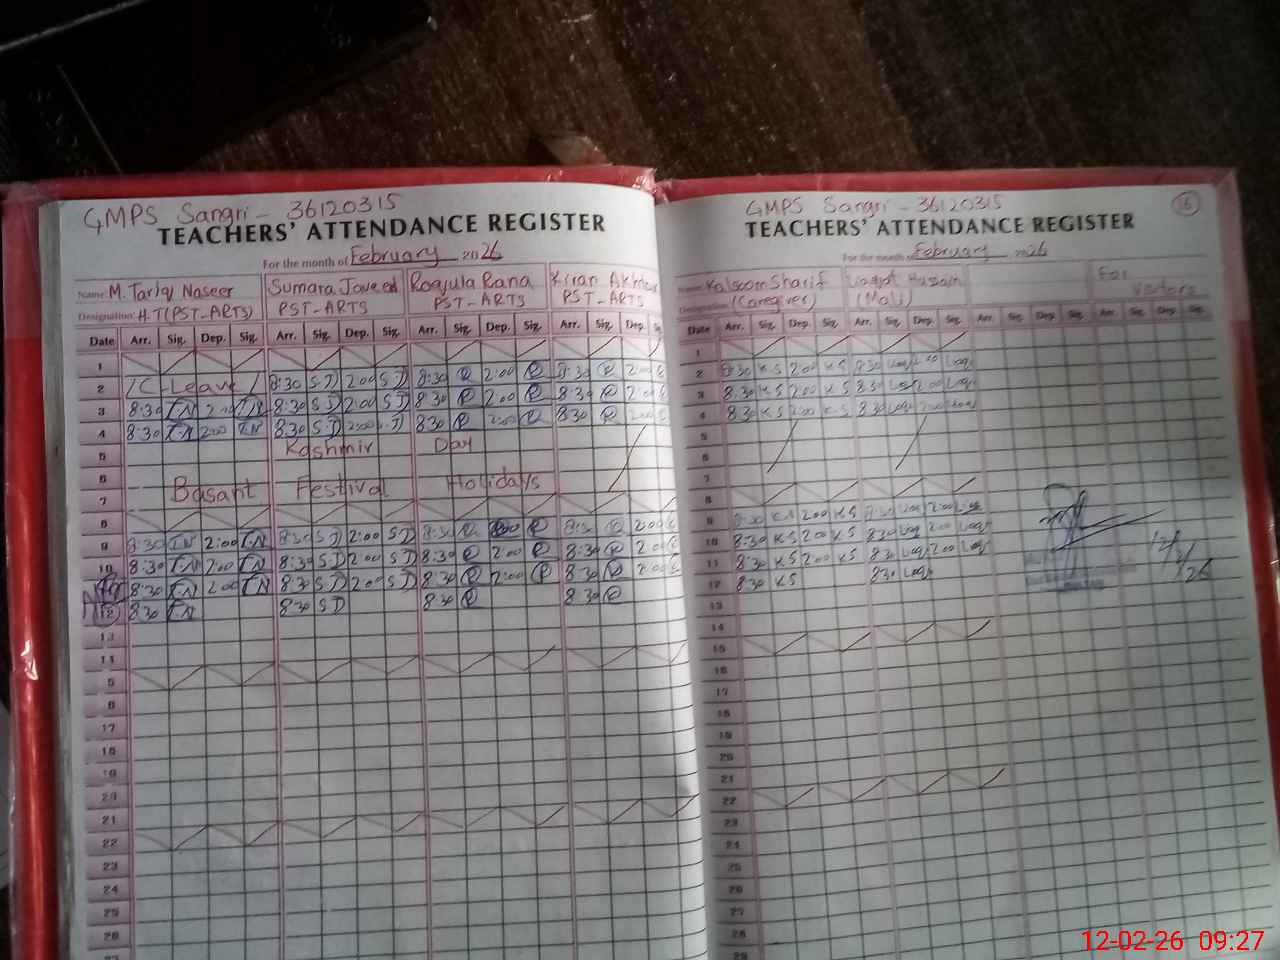 GMPS Sangri - 36120315
TEACHERS' ATTENDANCE REGISTER
For the month of February 2026
Name: M. Tariq Naseer Sumara Javeed Roqula Rana Kiran Akhtar
Designation: H.T(PST-ARTS) PST-ARTS PST-ARTS PST-ARTS
Date Arr. Sig. Dep. Sig. Arr. Sig. Dep. Sig. Arr. Sig. Dep. Sig. Arr. Sig. Dep.
1
2 /C-Leave/ 8:30 S.J 2:00 S J 8:30 R 2:00 R 8:30 R 2:00
3 8:30 T.N 2:00 T.N 8:30 S J 2:00 S J 8:30 R 2:00 R 8:30 R 2:00
4 8:30 T.N 2:00 T.N 8:30 S.J 2:00 S.J 8:30 R 2:00 R 8:30 R 2:00
5 Kashmir Day
6
7 Basant Festival Holidays
8
9 8:30 T.N 2:00 T.N 8:30 S J 2:00 S J 8:30 R 2:00 R 8:30 R 2:00
10 8:30 T.N 2:00 T.N 8:30 S J 2:00 S J 8:30 R 2:00 R 8:30 R 2:00
8:30 T.N 2:00 T.N 8:30 S J 2:00 S J 8:30 R 2:00 R 8:30 R 2:00
12 8:30 T.N 8:30 S J 8:30 R 8:30 R
13
17
18
19
20
21
22
23
24
25
26
27
GMPS Sangri - 36120315 16
TEACHERS' ATTENDANCE REGISTER
For the month of February 2026
Name: Kalsoom Sharif Hussain For
Designation: (Caregiver) (Mali) Visitors
Date Arr. Sig. Dep. Sig. Arr. Sig. Dep. Sig. Arr. Sig. Dep. Sig. Arr. Sig. Dep. Sig.
1
2 8:30 K.S 2:00 K S 8:30 2:00
3 8:30 K.S 2:00 K S 8:30 2:00
4 8:30 K.S 2:00 K.S 8:30 2:00
5
6
7
8
9 8:30 K.S 2:00 K S 8:30 2:00
10 8:30 K.S 2:00 K S 8:30 2:00
11 8:30 K S 2:00 K S 8:30 2:00
12 8:30 K S 8:30
12/2/26
13
14
15
16
17
18
19
20
21
22
23
24
25
26
27
28
29
12-02-26 09:27